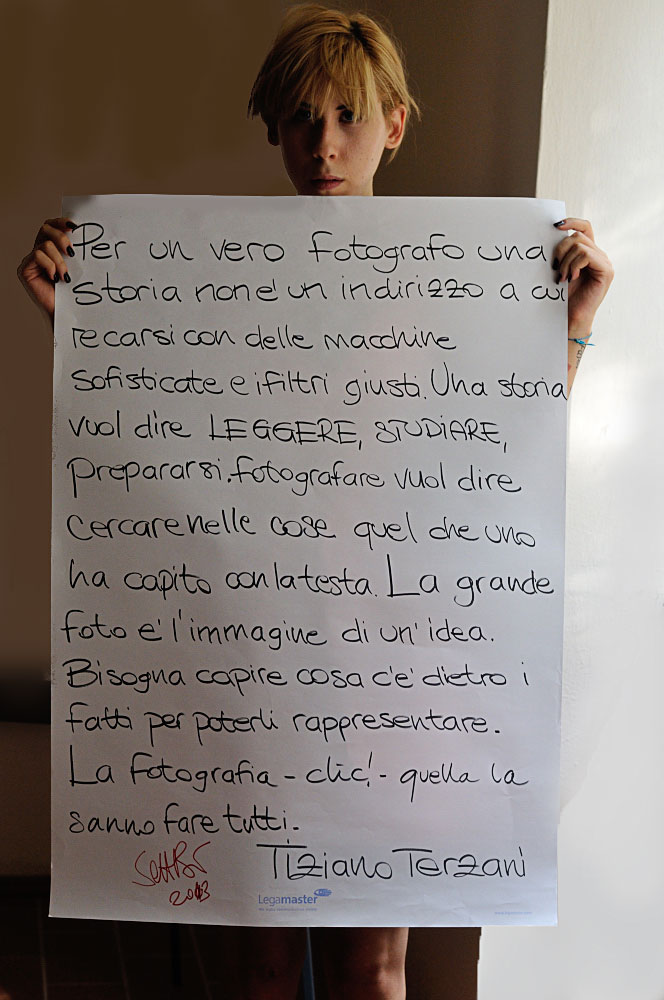 Per un vero fotografo una
storia non è un indirizzo a cui
recarsi con delle macchine
sofisticate e i filtri giusti. Una storia
vuol dire LEGGERE, STUDIARE,
prepararsi. fotografare vuol dire
cercare nelle cose quel che uno
ha capito con la testa. La grande
foto è l'immagine di un'idea.
Bisogna capire cosa c'è dietro i
fatti per poterli rappresentare.
La fotografia - clic! - quella la
sanno fare tutti.
Tiziano Terzani
2013
Legamaster